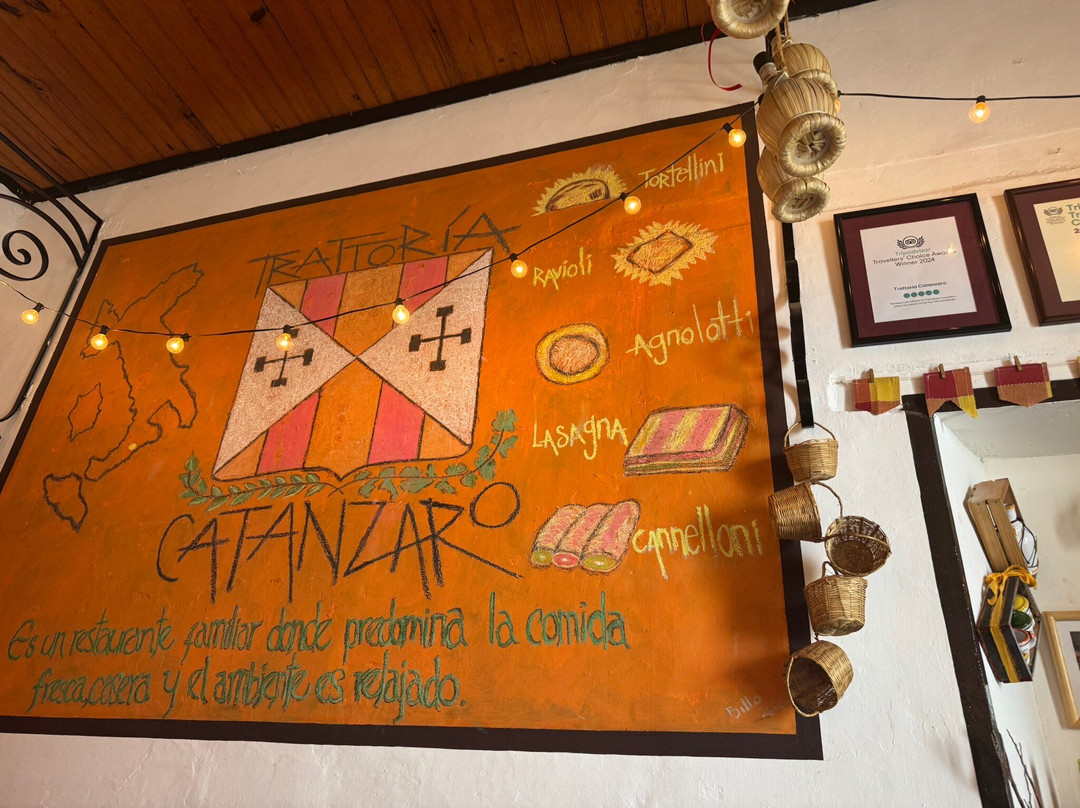 TRATTORÍA
CATANZARO
TORTELLINI
RAVIOLI
Agnolotti
LASAGNA
CANNELLONI
Es un restaurante familiar donde predomina la comida
fresca,casera y el ambiente es relajado.
Billo
Tripadvisor
Travellers' Choice Awards
Winner 2024
Trattoria Catanzaro